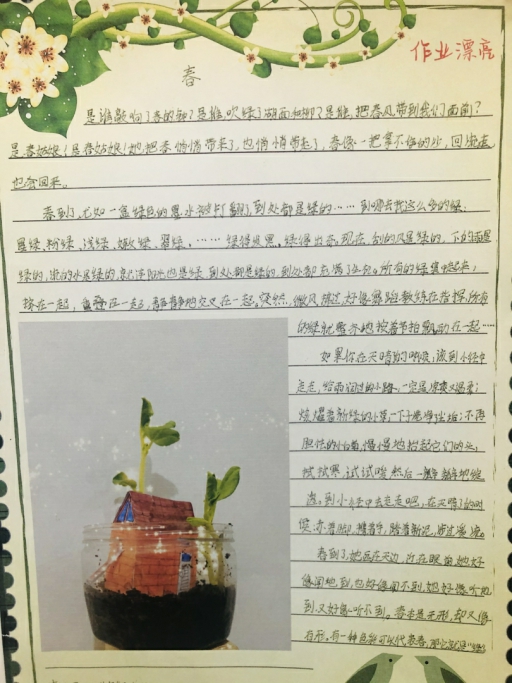 作业漂亮
春
是谁敲响了春的钟?是谁吹绿了湖面和柳?是谁,把春风带到我们面前?
是春姑娘!是春姑娘!她把春悄悄带来了,也悄悄带走了,春像一把拿不住的沙,回
也会回来。
春到了,尤如一盒绿色的墨水被打翻了,到处都是绿的……到哪去找这么多的绿:
墨绿、粉绿、浅绿、嫩绿、翠绿、……绿得发黑、绿得出奇,现在,刮的风是绿的,下的雨是
绿的,流的水是绿的,就连阳光也是绿,到处都是绿的,到处都充满了生机。所有的绿集中起来,
挤在一起,重叠在一起,静静地交叉在一起。突然,微风拂过,好像舞蹈教练在指挥,所有
的绿就整齐地按着节拍飘动在一起……
如果你在天晴的时候,该到小径中
走走,给雨润过的小路,一定是凉爽又温柔;
炫耀着新绿的小草,一下子洗净;不再
胆怯的小白菊,慢慢地抬起它们的头,
试试寒,试试暖,然后一瓣瓣地绽
透。到小径中去走走吧,在天晴了的时
候,赤着脚,携着手,踏着新泥,涉过溪流。
春到了,她远在天边,近在眼前,她好
像闻地到,也好像闻不到,她好像听地
到,又好像听不到。春本是无形,却又像
有形。有一种色彩可以代表春,那它就是“绿”